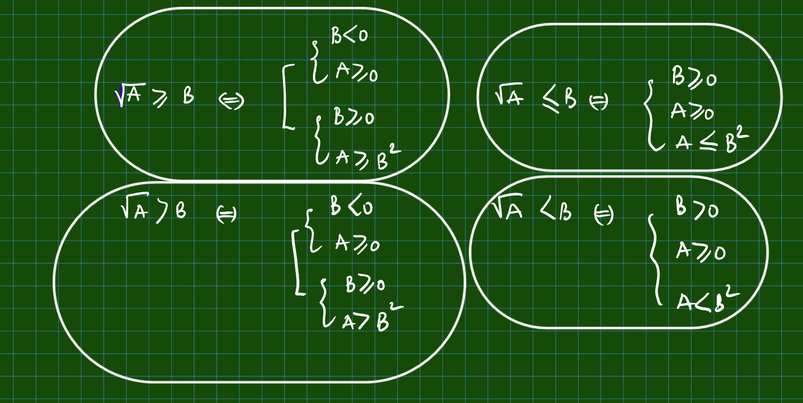 √A ≥ B ⇔ [ { B<0
A≥0
{ B≥0
A≥B²
√A ≤ B ⇔ { B≥0
A≥0
A≤B²
√A > B ⇔ [ { B<0
A≥0
{ B≥0
A>B²
√A < B ⇔ { B>0
A≥0
A<B²